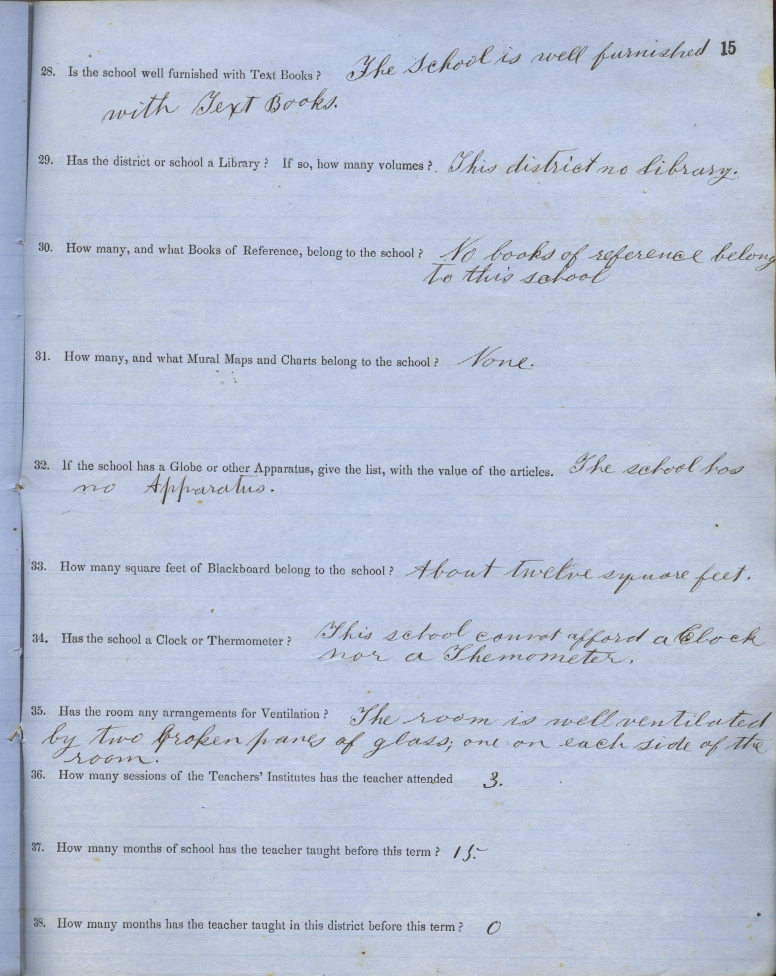 15
28. Is the school well furnished with Text Books? The School is well furnished
with Text Books.
29. Has the district or school a Library? If so, how many volumes? This district no Library.
30. How many, and what Books of Reference, belong to the school? No books of reference belong
to this school
31. How many, and what Mural Maps and Charts belong to the school? None.
32. If the school has a Globe or other Apparatus, give the list, with the value of the articles. The school has
no Apparatus.
33. How many square feet of Blackboard belong to the school? About twelve square feet.
34. Has the school a Clock or Thermometer? This school cannot afford a Clock
nor a Themometer.
35. Has the room any arrangements for Ventilation? The room is well ventilated
by two broken panes of glass; one on each side of the
room.
36. How many sessions of the Teachers' Institutes has the teacher attended 3.
37. How many months of school has the teacher taught before this term? 15.
38. How many months has the teacher taught in this district before this term? 0